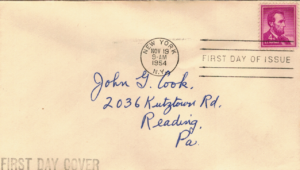 NEW YORK
NOV 19
9-AM
1954
N.Y.
FIRST DAY OF ISSUE
John G. Cook.
2036 Kutztown Rd.
Reading,
Pa.
FIRST DAY COVER